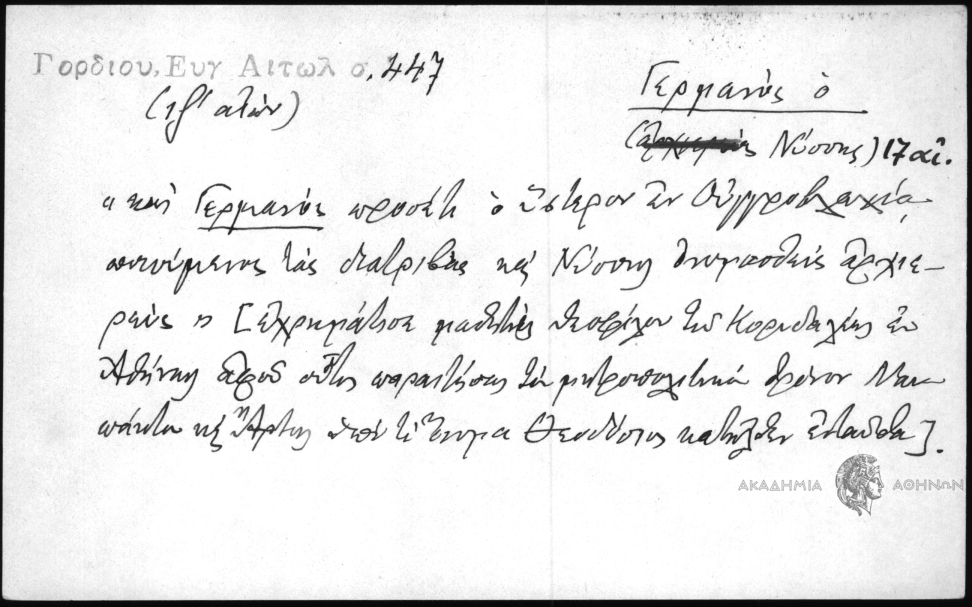 Γορδίου, Ευγ Αιτωλ σ. 447
(ιζ' αἰών)
Γερμανὸς ὁ
Νύσσης) 17 αἰ.
"καὶ Γερμανὸς προσέτι ὁ ὕστερον ἐν Οὐγγροβλαχίᾳ
ποιούμενος τὰς διατριβὰς καὶ Νύσσης ὀνομασθεὶς ἀρχιε-
ρεὺς" [ἐχρημάτισε μαθητὴς Θεοφίλου τοῦ Κορυδαλέως ἐν
Ἀθήναις ἀφοῦ οὗτος παραιτήσας τὸν μητροπολιτικὸν θρόνον Ναυ
πάκτου καὶ Ἄρτης ὑπὸ τὸ ὄνομα Θεοδόσιος κατῆλθεν ἐνταῦθα].
ΑΚΑΔΗΜΙΑ ΑΘΗΝΩΝ